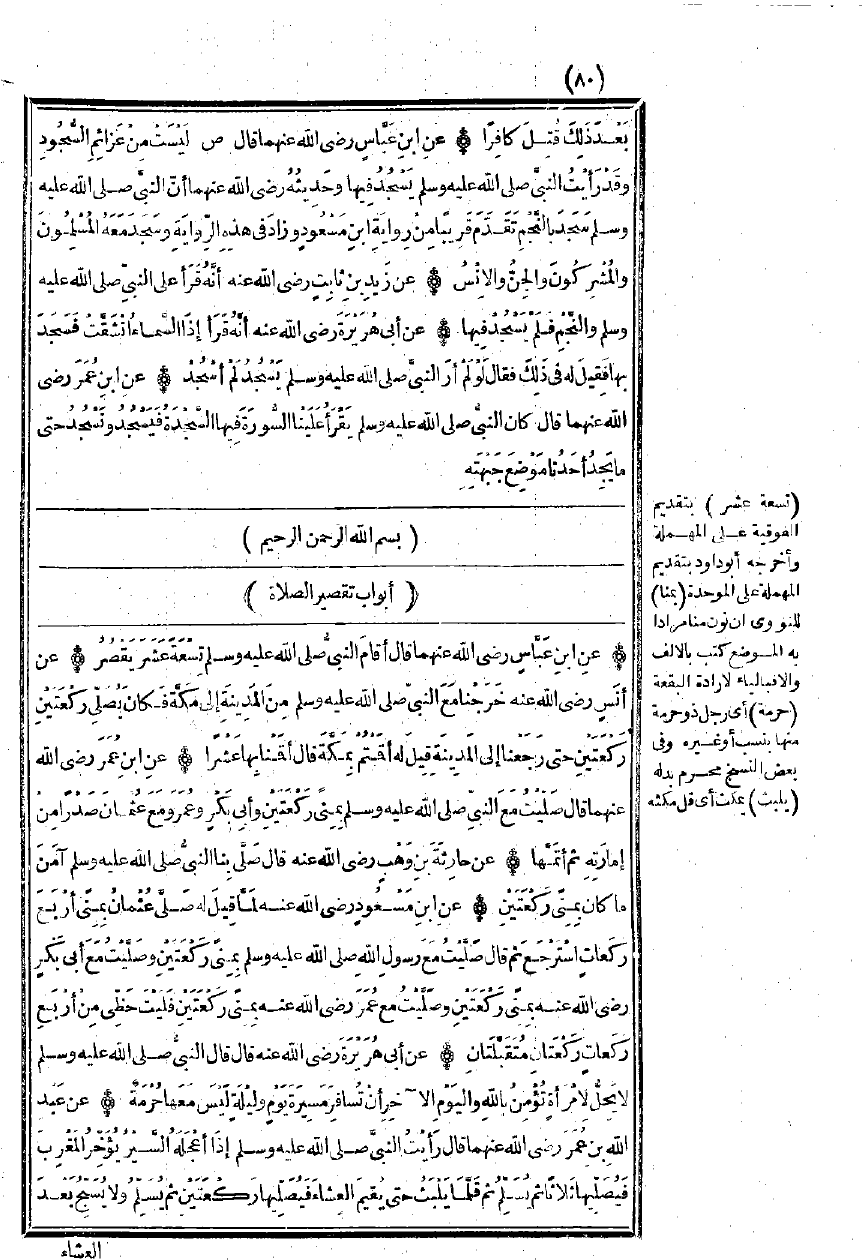 (٨٠)
بَعْدَ ذَلِكَ قُتِلَ كَافِرًا ۞ عن ابنِ عَبَّاسٍ رضى الله عنهما قال ص لَيْسَتْ مِنْ عَزَائِمِ السُّجُودِ
وقَدْ رَأَيْتُ النبيَّ صلى الله عليه وسلم يَسْجُدُ فيها وحديثُهُ رضى الله عنهما أنّ النبيّ صلى الله عليه
وسلم سَجَدَ بالنَّجْمِ تَقَدَّمَ قَرِيبًا مِنْ رِوايةِ ابنِ مَسْعُودٍ وزادَ فى هذه الرِّوايَةِ وسَجَدَ مَعَهُ المُسْلِمُونَ
والمُشْرِكُونَ والجِنُّ والإنْسُ ۞ عن زَيدِ بنِ ثابِتٍ رضى الله عنه أنَّهُ قَرَأَ على النبيّ صلى الله عليه
وسلم والنَّجْمِ فَلَمْ يَسْجُدْ فيها ۞ عن أبى هُرَيْرَةَ رضى الله عنه أنَّهُ قَرَأَ إذَا السَّماءُ انْشَقَّتْ فَسَجَدَ
بِها فَقِيلَ لَهُ فى ذَلِكَ فقال لَوْ لَمْ أرَ النبيَّ صلى الله عليه وسلم يَسْجُدُ لَمْ أسْجُدْ ۞ عن ابنِ عُمَرَ رضى
الله عنهما قال كان النبيُّ صلى الله عليه وسلم يَقْرَأُ عَلَيْنا السُّورَةَ فيها السَّجْدَةُ فَيَسْجُدُ ونَسْجُدُ حتى
ما يَجِدُ أحَدُنا مَوْضِعَ جَبْهَتِهِ
( بسم الله الرحمن الرحيم )
( أبواب تقصير الصلاة )
۞ عن ابنِ عَبَّاسٍ رضى الله عنهما قال أقامَ النبيُّ صلى الله عليه وسلم تِسْعَةَ عَشَرَ يَقْصُرُ ۞ عن
أنَسٍ رضى الله عنه خَرَجْنا مَعَ النبيّ صلى الله عليه وسلم مِنَ المَدِينَةِ إلى مَكَّةَ فَكانَ يُصَلِّى رَكْعَتَيْنِ
رَكْعَتَيْنِ حتى رَجَعْنا إلى المَدِينَةِ قِيلَ لَهُ أقَمْتُمْ بِمَكَّةَ قال أقَمْنا بِها عَشْرًا ۞ عن ابنِ عُمَرَ رضى الله
عنهما قال صَلَّيْتُ مَعَ النبيّ صلى الله عليه وسلم بِمِنًى رَكْعَتَيْنِ وأبى بَكْرٍ وعُمَرَ ومَعَ عُثْمانَ صَدْرًا مِنْ
إمارَتِهِ ثم أتَمَّها ۞ عن حارِثَةَ بنِ وَهْبٍ رضى الله عنه قال صَلَّى بِنا النبيُّ صلى الله عليه وسلم آمَنَ
ما كانَ بِمِنًى رَكْعَتَيْنِ ۞ عن ابنِ مَسْعُودٍ رضى الله عنه لَمَّا قِيلَ له صَلَّى عُثْمانُ بِمِنًى أرْبَعَ
رَكَعاتٍ اسْتَرْجَعَ ثم قال صَلَّيْتُ مَعَ رسولِ الله صلى الله عليه وسلم بِمِنًى رَكْعَتَيْنِ وصَلَّيْتُ مَعَ أبى بَكْرٍ
رضى الله عنه بِمِنًى رَكْعَتَيْنِ وصَلَّيْتُ مع عُمَرَ رضى الله عنه بِمِنًى رَكْعَتَيْنِ فَلَيْتَ حَظِّى مِنْ أرْبَعِ
رَكَعاتٍ رَكْعَتانِ مُتَقَبَّلَتانِ ۞ عن أبى هُرَيْرَةَ رضى الله عنه قال قال النبيُّ صلى الله عليه وسلم
لا يَحِلُّ لامْرَأةٍ تُؤْمِنُ بالله واليَوْمِ الآخِرِ أنْ تُسافِرَ مَسِيرَةَ يَوْمٍ ولَيْلَةٍ لَيْسَ مَعَها حُرْمَةٌ ۞ عن عبد
الله بنِ عُمَرَ رضى الله عنهما قال رَأيْتُ النبيَّ صلى الله عليه وسلم إذَا أعْجَلَهُ السَّيْرُ يُؤَخِّرُ المَغْرِبَ
فَيُصَلِّيها ثَلاثًا ثم يُسَلِّمُ ثم قَلَّما يَلْبَثُ حتى يُقِيمَ العِشاءَ فَيُصَلِّيها رَكْعَتَيْنِ ثم يُسَلِّمُ ولا يُسَبِّحُ بَعْدَ
العشاء
(تسعة عشر) بتقديم
الفوقية على المهملة
وأخرجه أبو داود بتقديم
المهملة على الموحدة (بمنا)
للنووى ان نون منا مرادا
به الموضع كتب بالالف
والافبالياء لارادة البقعة
(حرمة) أى رجل ذو حرمة
منها بنسب أو غيره وفى
بعض النسخ محرم بدله
(يلبث) يمكث أى قل مكثه